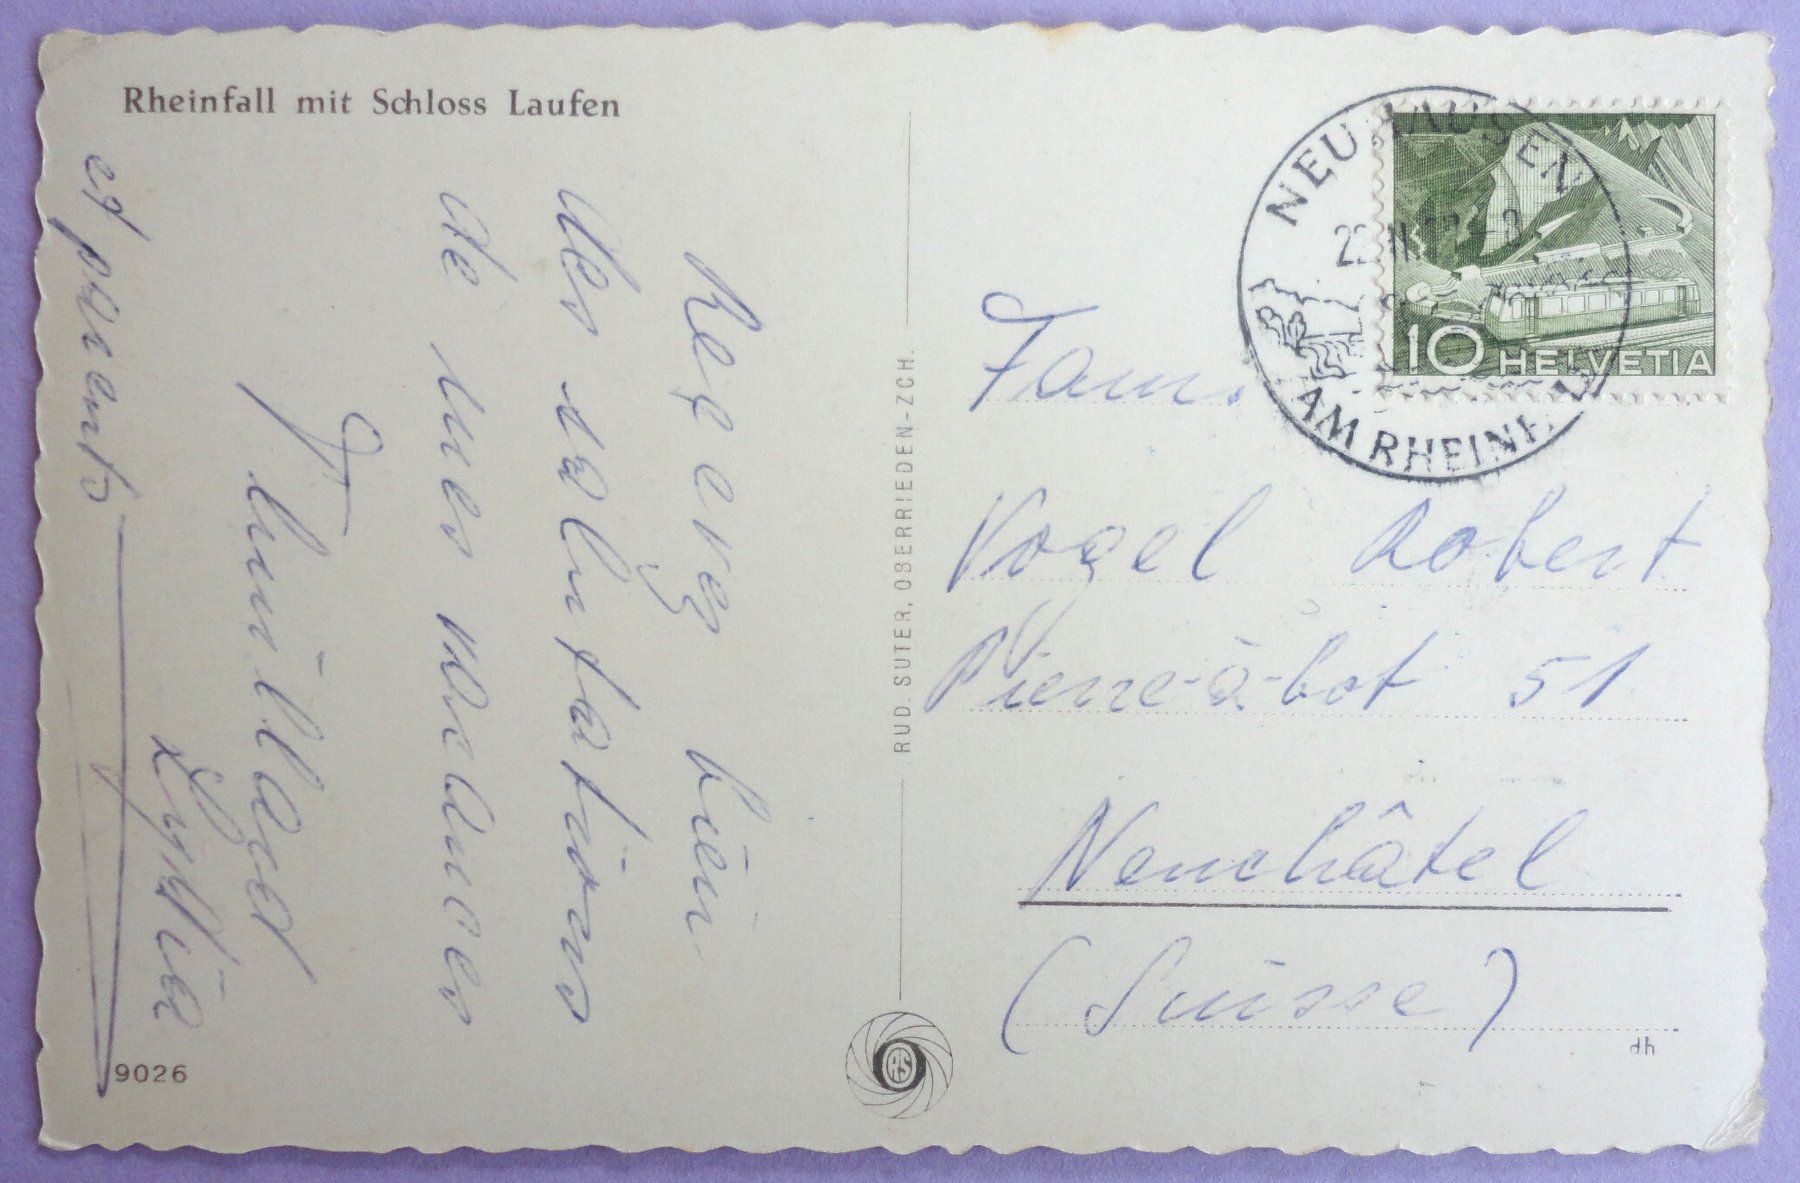 Rheinfall mit Schloss Laufen
Recevez bien
des salutations
de mes vacances
Lydia
et parents
9026
RUD. SUTER, OBERRIEDEN-ZCH.
RS
NEUHAUSEN
AM RHEINFALL
10 HELVETIA
Fam.
Vogel Robert
Pierre-à-bot 51
Neuchâtel
(Suisse)
dh